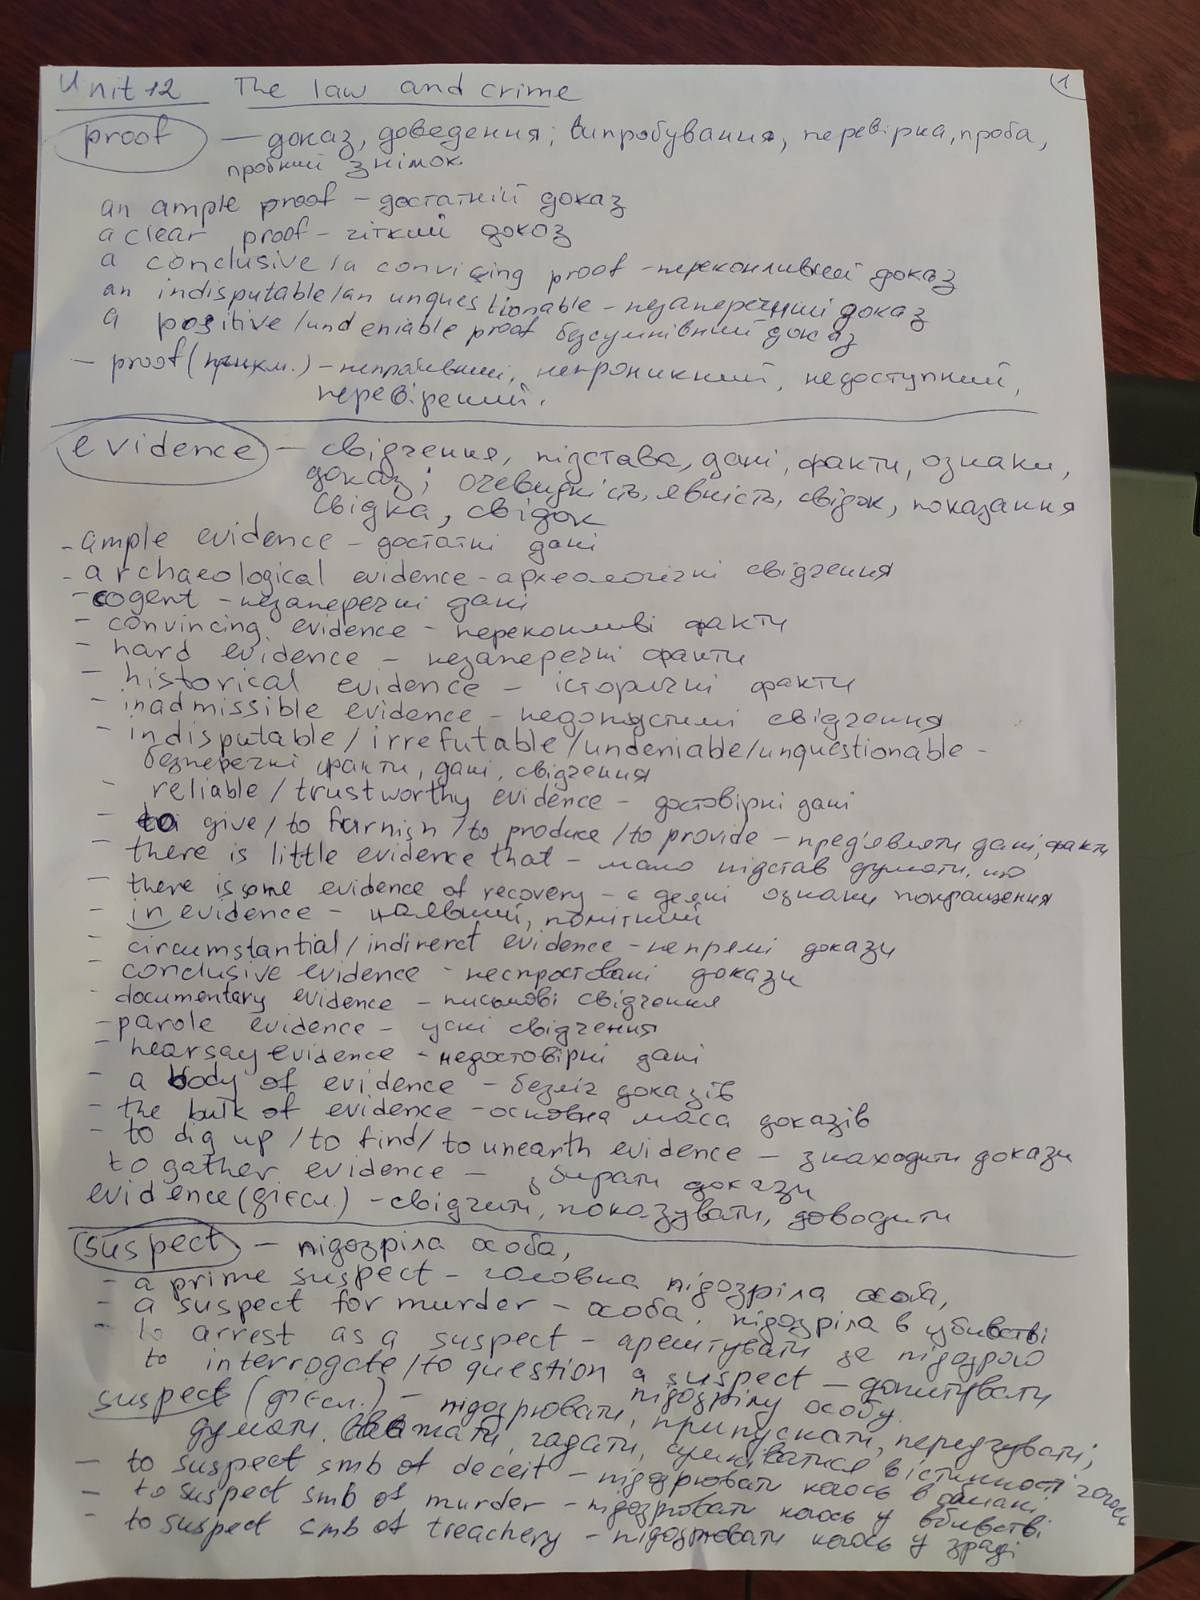 Unit 12 The law and crime
1
proof — доказ, доведення; випробування, перевірка, проба,
пробний знімок.
an ample proof – достатній доказ
a clear proof – чіткий доказ
a conclusive/a convicing proof – переконливий доказ
an indisputable/an unquestionable – незаперечний доказ
a positive/undeniable proof безсумнівний доказ
– proof (прикм.) – непроникний, недоступний,
перевірений.
evidence – свідчення, підстава, дані, факти, ознаки,
доказ; очевидність, явність, свідок, показання
свідка, свідок
- ample evidence – достатні дані
- archaeological evidence - археологічні свідчення
- cogent – незаперечні дані
- convincing evidence – переконливі факти
- hard evidence – незаперечні факти
- historical evidence – історичні факти
- inadmissible evidence – недопустимі свідчення
- indisputable/irrefutable/undeniable/unquestionable -
безперечні факти, дані, свідчення
- reliable/trustworthy evidence – достовірні дані
- to give/to furnish/to produce/to provide – пред'являти дані, факти
- there is little evidence that – мало підстав думати, що
- there is some evidence of recovery – є деякі ознаки покращення
- in evidence – наявний, помітний
- circumstantial/indirect evidence – непрямі докази
- conclusive evidence – неспростовні докази
- documentary evidence – письмові свідчення
- parole evidence – усні свідчення
- hearsay evidence – недостовірні дані
- a body of evidence – безліч доказів
- the bulk of evidence – основна маса доказів
- to dig up/to find/to unearth evidence – знаходити докази
to gather evidence – збирати докази
evidence (дієсл.) – свідчити, показувати, доводити
suspect – підозріла особа,
- a prime suspect – головна підозріла особа,
- a suspect for murder – особа, підозріла в убивстві
- to arrest as a suspect – арештувати за підозрою
to interrogate/to question a suspect – допитувати
підозрілу особу.
suspect (дієсл.) – підозрювати, припускати, передчувати;
думати, вважати, гадати, сумніватися в істинності чогось
– to suspect smb of deceit – підозрювати когось в обмані
– to suspect smb of murder – підозрювати когось у вбивстві
- to suspect smb of treachery – підозрювати когось у зраді